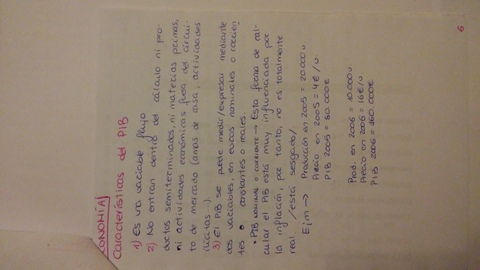 CONOMÍA
Características del PIB
1) Es una variable flujo
2) No entran dentro del cálculo ni pro-
ductos semiterminados, ni materias primas,
ni actividades económicas fuera del circui-
to de mercado (amas de casa, actividades
ilícitas).
3) El PIB se puede medir/expresar mediante
dos variables, en euros nominales o corrien-
tes o constantes o reales.
• PIB nominal o corriente → Esta forma de cal-
cular el PIB está muy influenciada por
la inflación, por tanto, no es totalmente
real / está sesgado/
Ejm → Producción en 2005 = 20.000 u.
Precio en 2005 = 4€/u.
PIB 2005 = 80.000€
Prod. en 2006 = 10.000 u.
Precio en 2006 = 16€/u
PIB 2006 = 160.000€
6